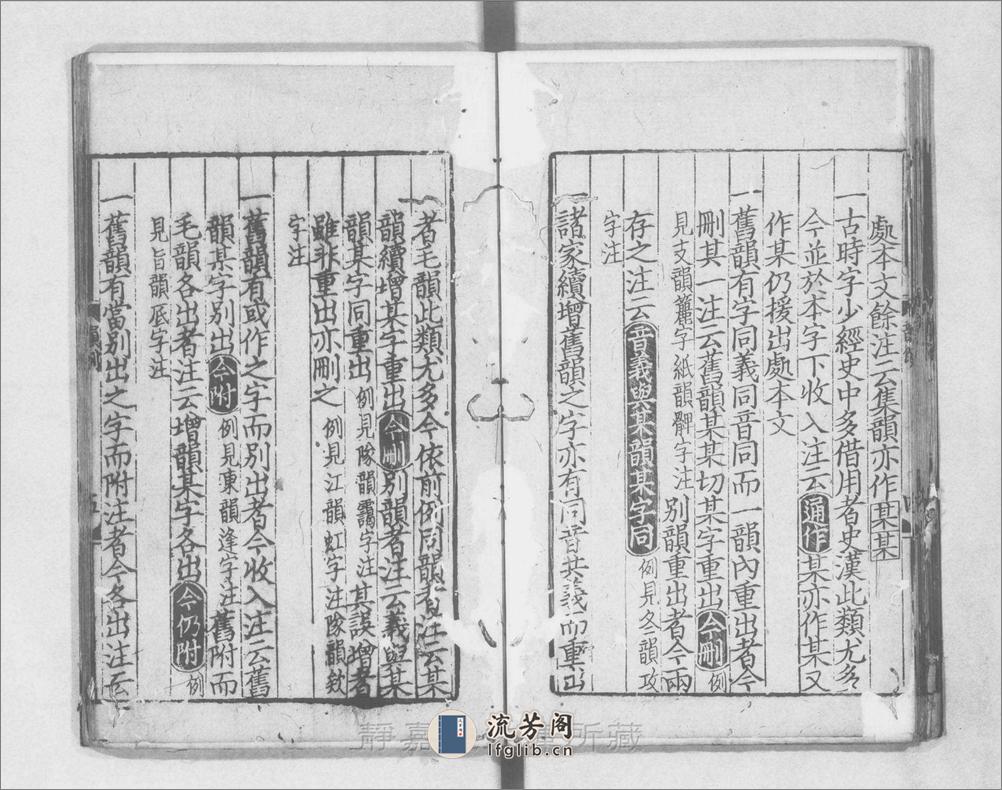 處本文餘注云集韻亦作某某
一古時字少經史中多借用者史漢此類尤多
今並於本字下收入注云通作某亦作某又
作某仍援出處本文
一舊韻有字同義同音同而一韻內重出者今
刪其一注云舊韻某某切某字重出今刪例
見支韻籭字紙韻髀字注別韻重出者今兩
存之注云音義與某韻某字同例見各韻攻
字注
一諸家續增舊韻之字亦有同音其義而重出
者毛韻此類尤多今依前例同韻者注云某
韻續增某字重出今刪別韻者注云義與某
韻某字同重出例見隊韻靄字注其誤增者
雖非重出亦刪之例見江韻虹字注隊韻欸
字注
一舊韻有或作之字而別出者今收入注云舊
韻某字別出今附例見東韻逢字注舊附而
毛韻各出者注云增韻某字各出今仍附例
見旨韻底字注
一舊韻有當別出之字而附注者今各出注云
靜嘉 所藏
流芳阁
lfglib.cn